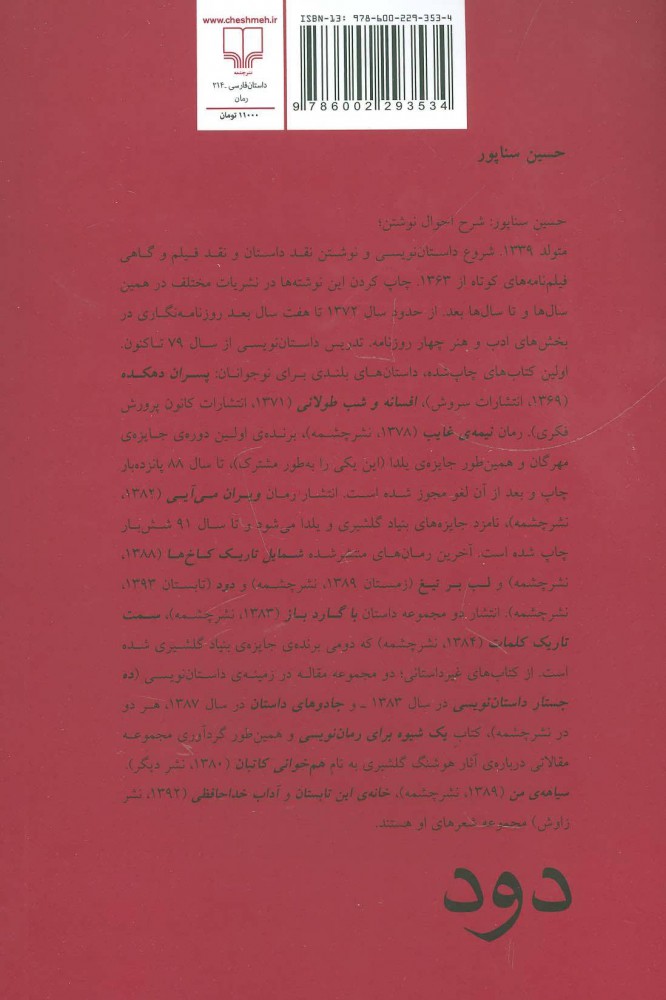 www.cheshmeh.ir
نشرچشمه
داستان فارسی ـ ۲۱۴
رمان
۱۱۰۰۰ تومان
ISBN-13: 978-600-229-353-4
9 786002 293534
حسین سناپور
حسین سناپور: شرح احوال نوشتن؛
متولد ۱۳۳۹. شروع داستان‌نویسی و نوشتن نقد داستان و نقد فیلم و گاهی
فیلم‌نامه‌های کوتاه از ۱۳۶۳. چاپ کردن این نوشته‌ها در نشریات مختلف در همین
سال‌ها و تا سال‌ها بعد. از حدود سال ۱۳۷۲ تا هفت سال بعد روزنامه‌نگاری در
بخش‌های ادب و هنر چهار روزنامه. تدریس داستان‌نویسی از سال ۷۹ تاکنون.
اولین کتاب‌های چاپ‌شده، داستان‌های بلندی برای نوجوانان: پسران دهکده
(۱۳۶۹، انتشارات سروش)، افسانه و شب طولانی (۱۳۷۱، انتشارات کانون پرورش
فکری). رمان نیمه‌ی غایب (۱۳۷۸، نشرچشمه)، برنده‌ی اولین دوره‌ی جایزه‌ی
مهرگان و همین‌طور جایزه‌ی یلدا (این یکی را به‌طور مشترک)، تا سال ۸۸ پانزده‌بار
چاپ و بعد از آن لغو مجوز شده است. انتشار رمان ویران می‌آیی (۱۳۸۲،
نشرچشمه)، نامزد جایزه‌های بنیاد گلشیری و یلدا می‌شود و تا سال ۹۱ شش‌بار
چاپ شده است. آخرین رمان‌های منتشرشده شمایل تاریک کاخ‌ها (۱۳۸۸،
نشرچشمه) و لب بر تیغ (زمستان ۱۳۸۹، نشرچشمه) و دود (تابستان ۱۳۹۳،
نشرچشمه). انتشار دو مجموعه داستان با گارد باز (۱۳۸۳، نشرچشمه)، سمت
تاریک کلمات (۱۳۸۴، نشرچشمه) که دومی برنده‌ی جایزه‌ی بنیاد گلشیری شده
است. از کتاب‌های غیرداستانی؛ دو مجموعه مقاله در زمینه‌ی داستان‌نویسی (ده
جستار داستان‌نویسی در سال ۱۳۸۳ ـ و جادوهای داستان در سال ۱۳۸۷، هر دو
در نشرچشمه)، کتاب یک شیوه برای رمان‌نویسی و همین‌طور گردآوری مجموعه
مقالاتی درباره‌ی آثار هوشنگ گلشیری به نام هم‌خوانی کاتبان (۱۳۸۰، نشر دیگر).
سیاهه‌ی من (۱۳۸۹، نشرچشمه)، خانه‌ی این تابستان و آداب خداحافظی (۱۳۹۲، نشر
زاوش) مجموعه شعرهای او هستند.
دود